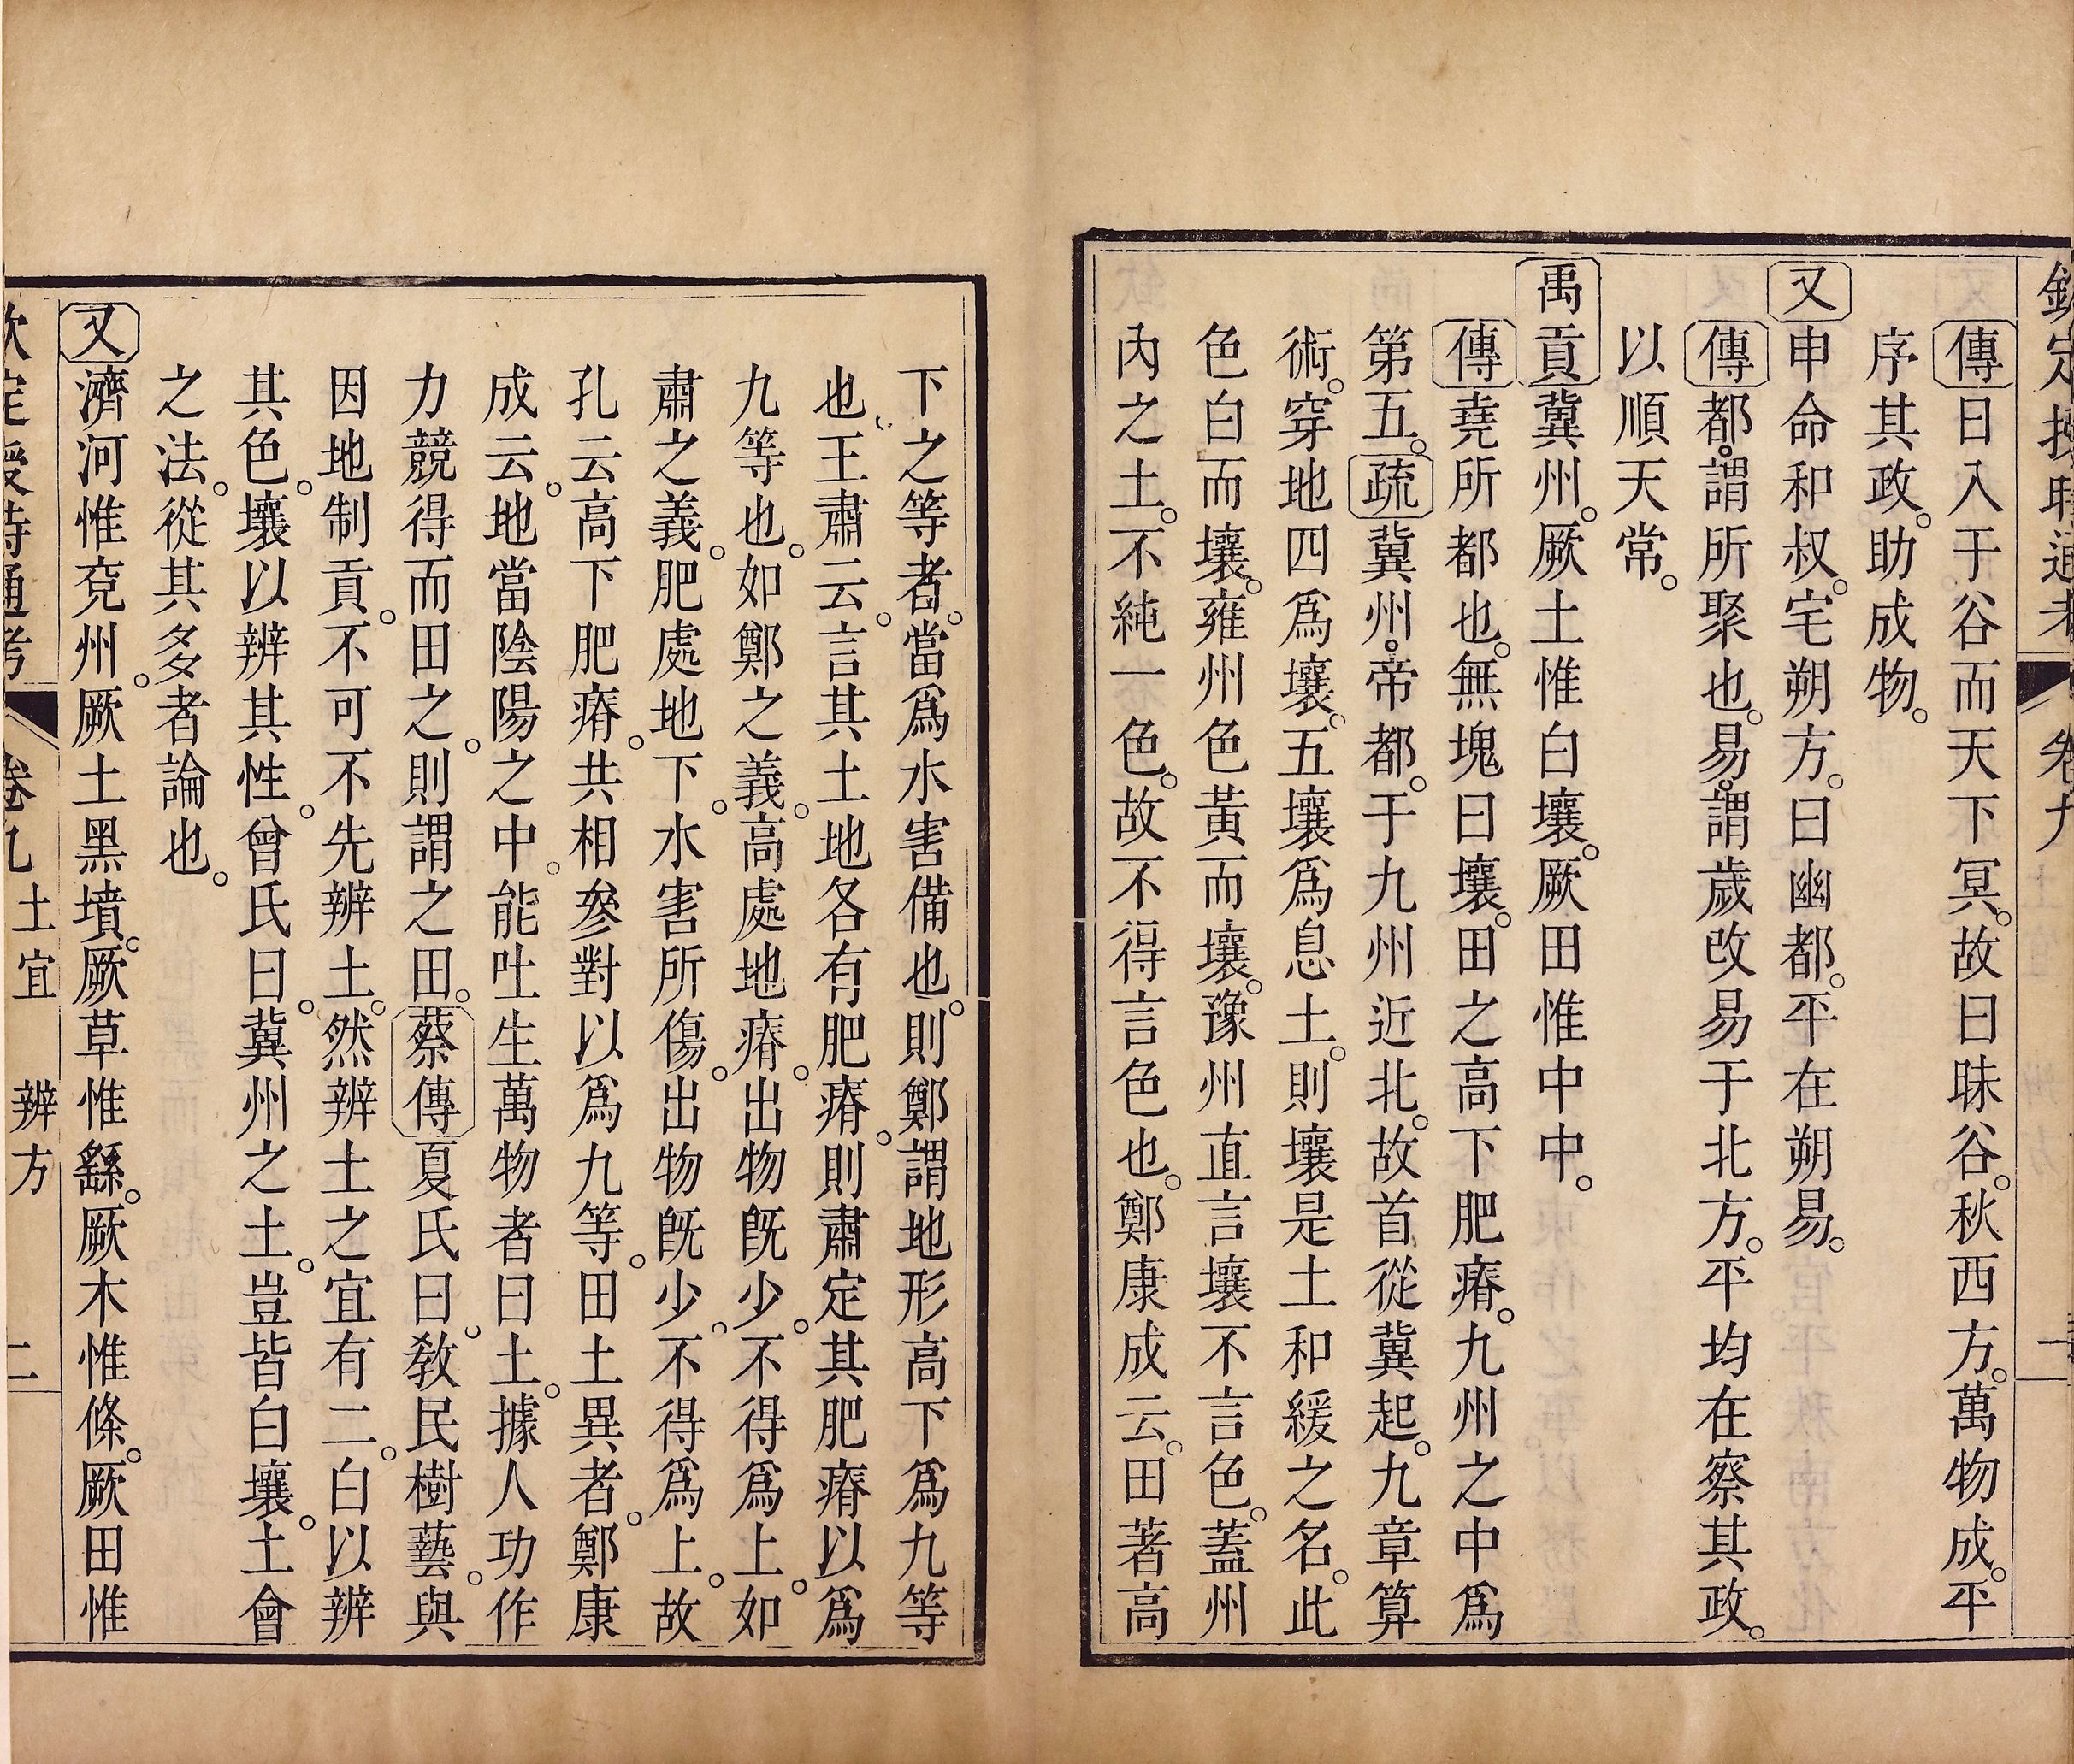 欽定授時通考 卷九 一
傳日入于谷而天下冥。故曰昧谷。秋西方。萬物成。平
序其政。助成物。
又申命和叔。宅朔方。曰幽都。平在朔易。
傳都。謂所聚也。易。謂歲改易于北方。平均在察其政。
以順天常。
禹貢冀州。厥土惟白壤。厥田惟中中。
傳堯所都也。無塊曰壤。田之高下肥瘠。九州之中爲
第五。疏冀州。帝都。于九州近北。故首從冀起。九章算
術。穿地四爲壤。五壤爲息土。則壤是土和緩之名。此
色白而壤。雍州色黃而壤。豫州直言壤不言色。蓋州
內之土。不純一色。故不得言色也。鄭康成云。田著高
下之等者。當爲水害備也。則鄭謂地形高下爲九等
也、王肅云。言其土地各有肥瘠。則肅定其肥瘠以爲
九等也。如鄭之義。高處地瘠。出物旣少。不得爲上。如
肅之義。肥處地下。水害所傷。出物旣少。不得爲上。故
孔云高下肥瘠。共相參對以爲九等。田土異者。鄭康
成云。地當陰陽之中。能吐生萬物者曰土。據人功作
力競得而田之。則謂之田。蔡傳夏氏曰。敎民樹藝。與
因地制貢。不可不先辨土。然辨土之宜有二。白以辨
其色。壤以辨其性。曾氏曰。冀州之土。豈皆白壤。土會
之法。從其多者論也。
又濟河惟兗州。厥土黑墳。厥草惟繇。厥木惟條。厥田惟
欽定授時通考 卷九 土宜 辨方 二